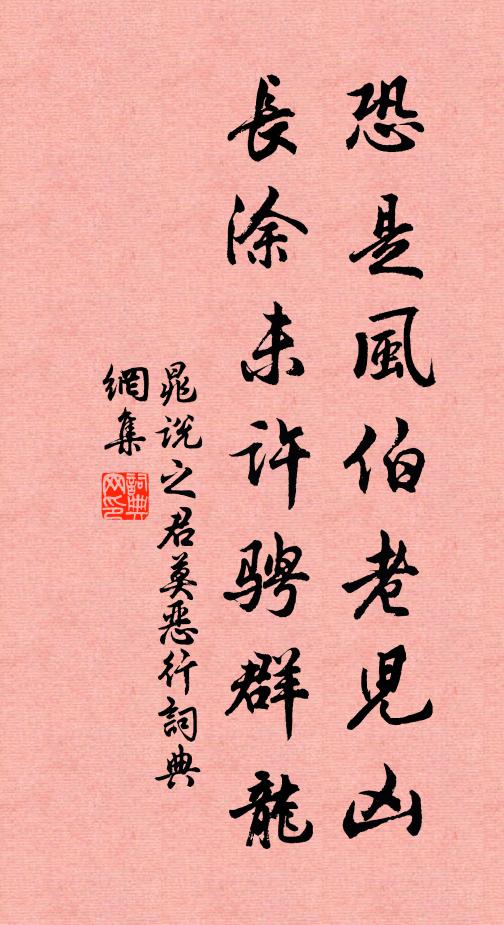 恐是風伯老兒凶
長涂未許騁群龍
晁說之君莫惡行詞典
網集
詞典
网印